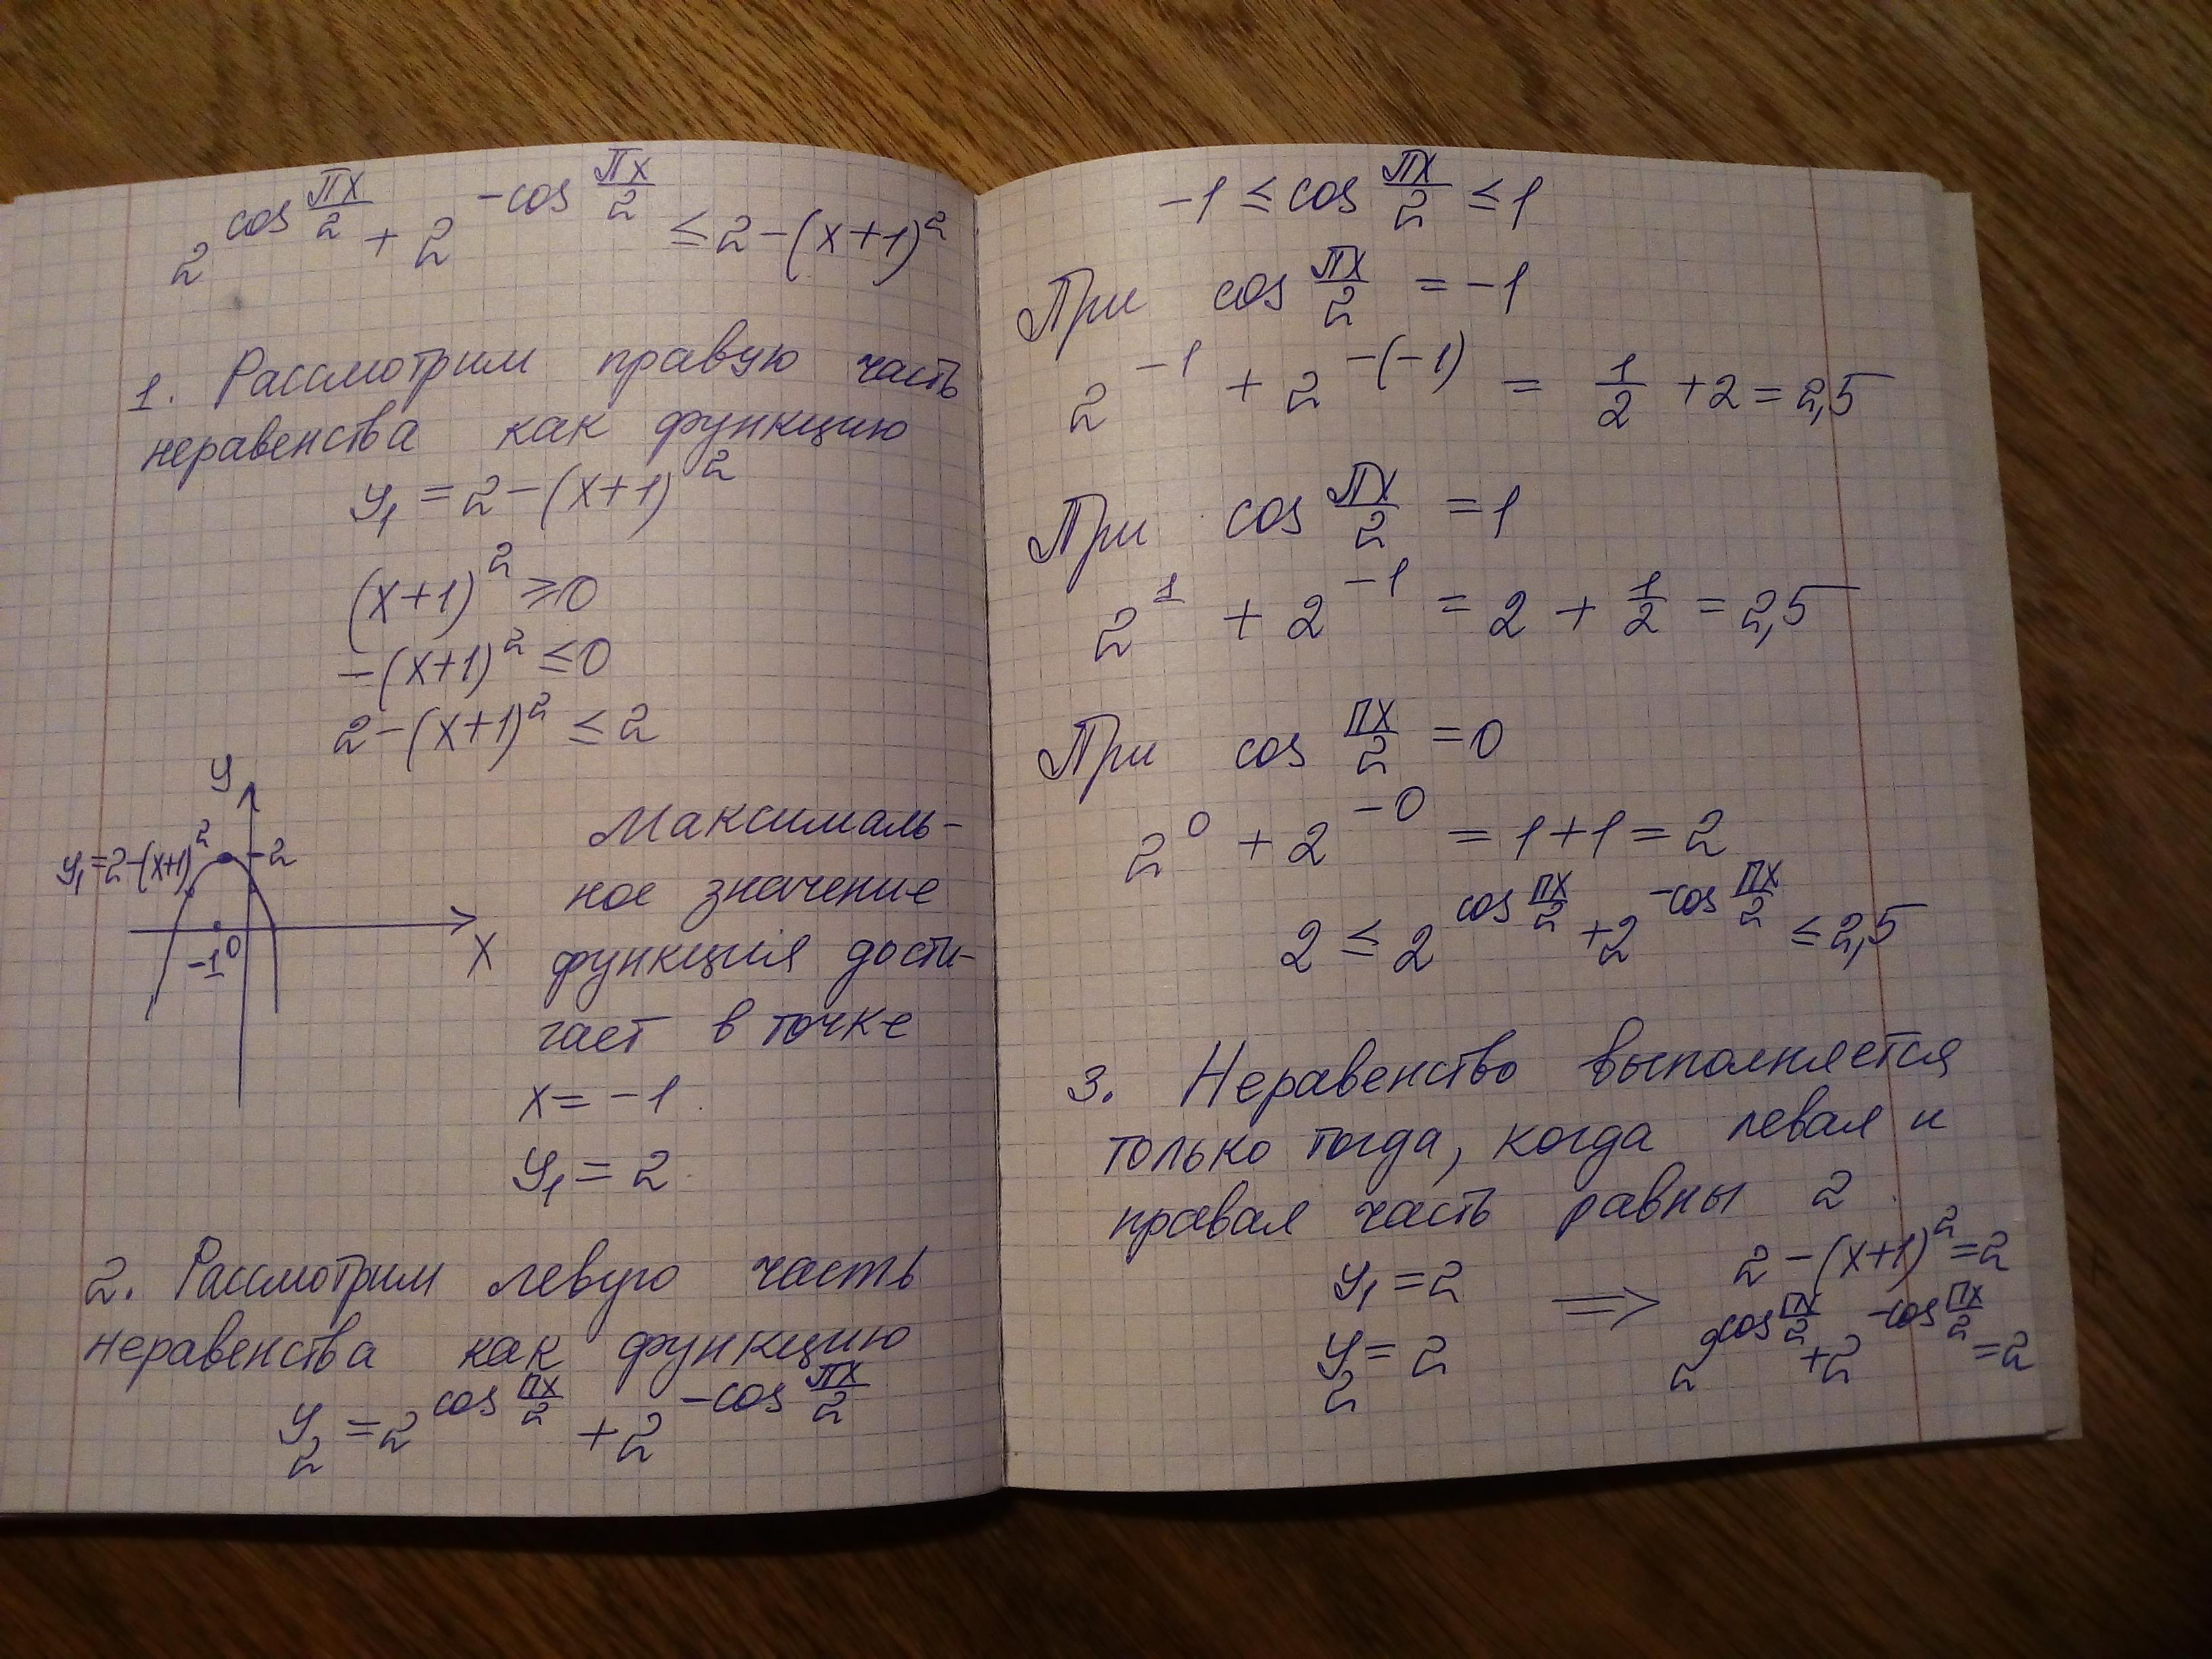 2^(cos πx/2) + 2^(-cos πx/2) ≤ 2-(x+1)²
1. Рассмотрим правую часть
неравенства как функцию
y₁ = 2-(x+1)²
(x+1)² ≥ 0
-(x+1)² ≤ 0
2-(x+1)² ≤ 2
y
y₁=2-(x+1)²
2
-1
0
x
Максималь-
ное значение
функция дости-
гает в точке
x = -1
y₁ = 2
2. Рассмотрим левую часть
неравенства как функцию
y₂ = 2^(cos πx/2) + 2^(-cos πx/2)
-1 ≤ cos πx/2 ≤ 1
При cos πx/2 = -1
2^(-1) + 2^(-(-1)) = 1/2 + 2 = 2,5
При cos πx/2 = 1
2^1 + 2^(-1) = 2 + 1/2 = 2,5
При cos πx/2 = 0
2^0 + 2^(-0) = 1+1 = 2
2 ≤ 2^(cos πx/2) + 2^(-cos πx/2) ≤ 2,5
3. Неравенство выполняется
только тогда, когда левая и
правая часть равны 2
y₁ = 2 ⟹ 2-(x+1)² = 2
y₂ = 2 2^(cos πx/2) + 2^(-cos πx/2) = 2